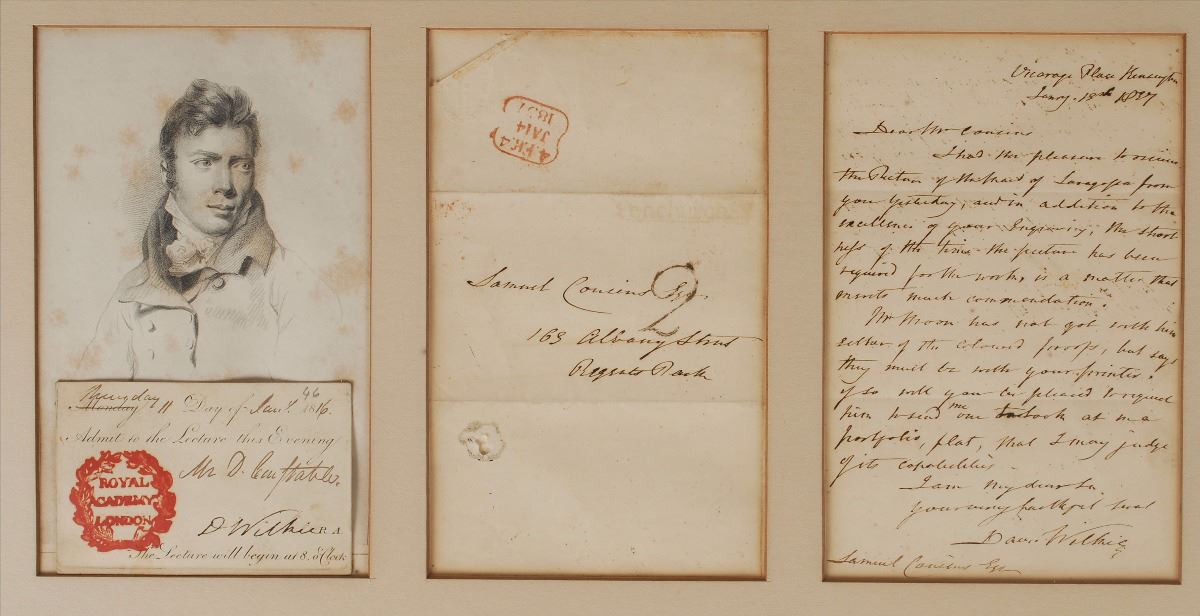 Thursday
Monday 11 Day of Jany. 1816.
46
Admit to the Lecture this Evening
Mr D. Constable,
ROYAL
ACADEMY
LONDON
D Wilkie R.A
The Lecture will begin at 8. o'Clock
4.EVE.4
JA14
1837
Samuel Cousins Esqr.
2
163 Albany Street
Regents Park
Vicarage Place Kensington
Janry. 13th 1837
Dear Mr Cousins
I had the pleasure to receive
the Picture of the Maid of Saragossa from
you yesterday, and in addition to the
excellence of your Engraving, the short
ness of the time the picture has been
required for the work, is a matter that
merits much commendation.
Mr Moon has not got with him
either of the coloured proofs, but says
they must be with your printer.
If so will you be pleased to request
him to send me one to look at in a
portfolio, flat, that I may judge
of its capabilities.
I am My dear Sir
your very faithful Servt
David Wilkie
Samuel Cousins Esqr